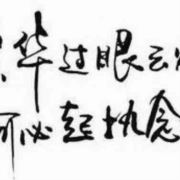 华过眼云
何必起执念